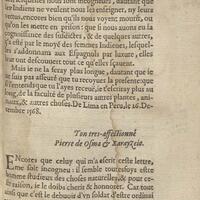 quelles nous sont incogneues, d'autant que
les Indiens ne veulent nous les enseigner, ny leurs
vertus, encores bien qu'ils nous voyent mourir, ou
qu'on les mette en pieces: que si nous auons eu la
cognoissance des susdictes, & de quelques autres,
ç'a esté par le moyẽ des femmes Indienes, lesquelles
s'addonnants aux Espagnols par luxure, elles
leur ont descouuert tout ce qu'elles sçauent.
Mais ie ne seray plus longue, d'autant que ie
ne suis pas asseuré que tu reçoyues la presente,
que i'entende que tu l'ayes receuë,
de la faculté, de plusieurs autres plantes, animaux,
& autres choses. De Lima en Peru, le 26. Decembre
1568.
Ton tres-affectionné
Pierre de Osma & Xarayzeio.
ENcores que celuy qui m'a escrit ceste lettre,
me soit incogneu: il semble toutesfoys estre
homme studieux des choses naturelles, & pour ceste
raison, ie le doibs cherir & honnorer. Car tout
ainsi que c'est le debuoir d'vn soldat d'estre ordinai